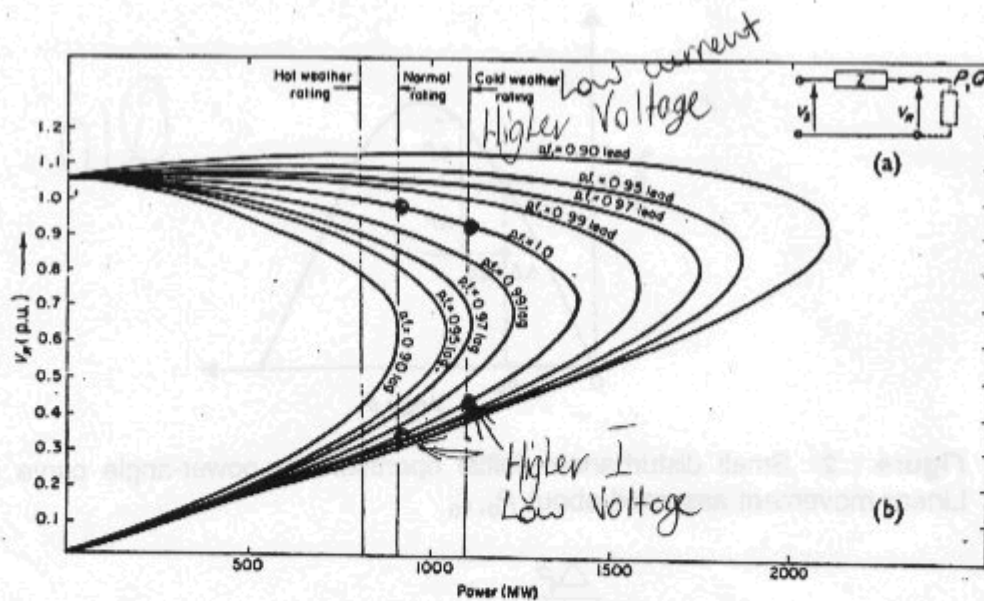 Low current
Hot weather rating
Normal rating
Cold weather rating
Higher Voltage
P, Q
Z
V_S
V_R
(a)
1.2
1.1
1.0
0.9
0.8
0.7
0.6
0.5
0.4
0.3
0.2
0.1
V_R (p.u.)
p.f. = 0.90 lead
p.f. = 0.95 lead
p.f. = 0.97 lead
p.f. = 0.99 lead
p.f. = 1.0
p.f. = 0.99 lag
p.f. = 0.97 lag
p.f. = 0.95 lag
p.f. = 0.90 lag
Higher I
Low Voltage
(b)
500
1000
1500
2000
Power (MW)